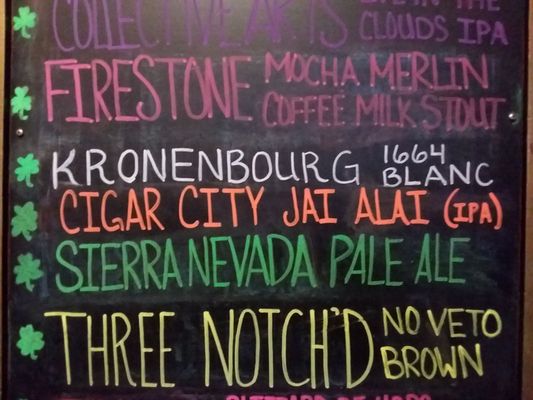 COLLECTIVE ARTS LIFE IN THE
CLOUDS IPA
FIRESTONE MOCHA MERLIN
COFFEE MILK STOUT
KRONENBOURG 1664
BLANC
CIGAR CITY JAI ALAI (IPA)
SIERRA NEVADA PALE ALE
THREE NOTCH'D NO VETO
BROWN